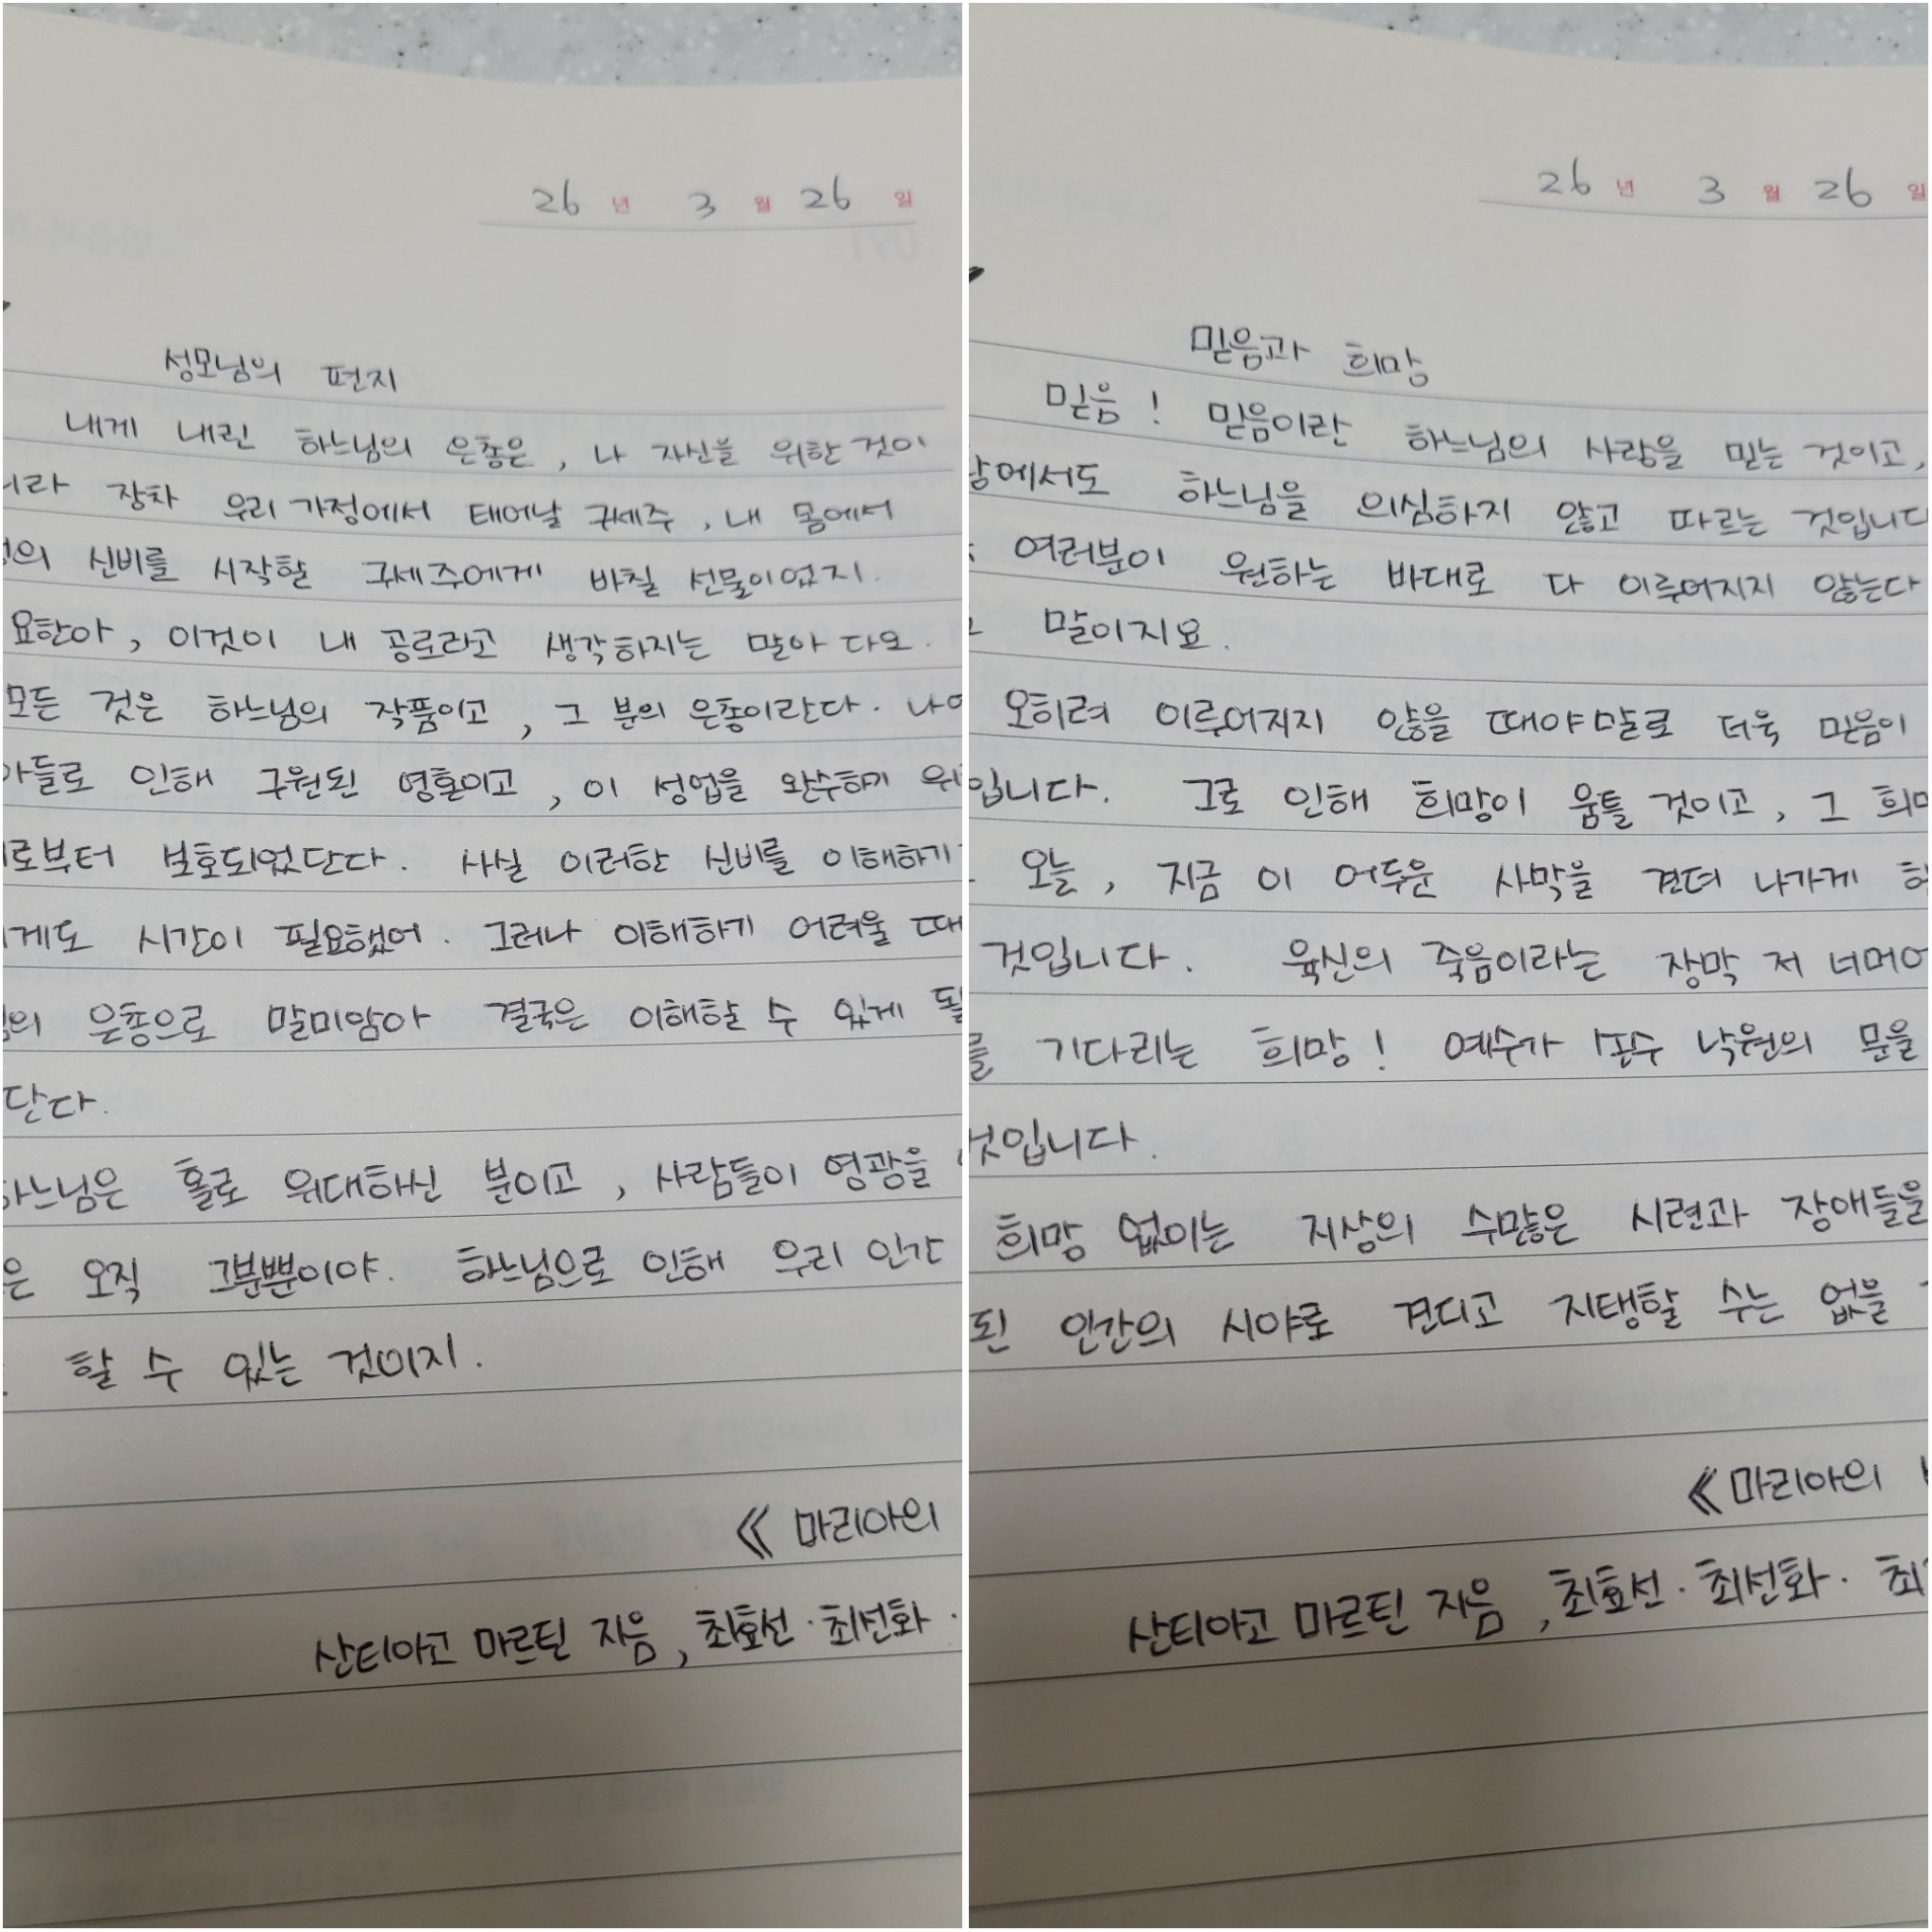 26 년 3 월 26 일
성모님의 편지
내게 내린 하느님의 은총은, 나 자신을 위한 것이
니라 장차 우리 가정에서 태어날 구세주, 내 몸에서
의 신비를 시작할 구세주에게 바칠 선물이었지.
요한아, 이것이 내 공로라고 생각하지는 말아 다오.
모든 것은 하느님의 작품이고, 그 분의 은총이란다.
아들로 인해 구원된 영혼이고, 이 성업을 완수하기 위
로부터 보호되었단다. 사실 이러한 신비를 이해하기
게도 시간이 필요했어. 그러나 이해하기 어려울 때
의 은총으로 말미암아 결국은 이해할 수 있게 될
단다.
하느님은 홀로 위대하신 분이고, 사람들이 영광을
은 오직 그분뿐이야. 하느님으로 인해 우리 인간
할 수 있는 것이지.
《마리아의
산티아고 마르틴 지음, 최효선·최선화·
26 년 3 월 26 일
믿음과 희망
믿음! 믿음이란 하느님의 사랑을 믿는 것이고,
에서도 하느님을 의심하지 않고 따르는 것입니다
여러분이 원하는 바대로 다 이루어지지 않는다
말이지요.
오히려 이루어지지 않을 때야말로 더욱 믿음이
입니다. 그로 인해 희망이 움틀 것이고, 그 희망
오늘, 지금 이 어두운 사막을 견뎌 나가게 하
것입니다. 육신의 죽음이라는 장막 저 너머에
를 기다리는 희망! 예수가 손수 낙원의 문을
것입니다.
희망 없이는 지상의 수많은 시련과 장애들을
된 인간의 시야로 견디고 지탱할 수는 없을
《마리아의
산티아고 마르틴 지음, 최효선·최선화·최